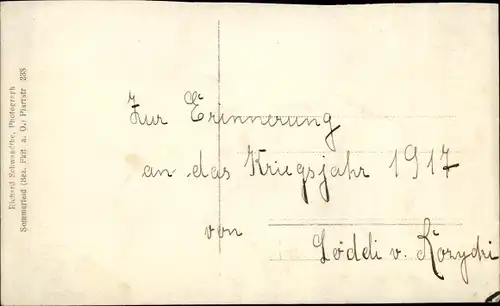 Zur Erinnerung
an das Kriegsjahr 1917
von
Löddi v. Rózycki
Richard Schwandtke, Photograph
Sommerfeld (Bez. Fkft. a. O.) Pfortstr 238